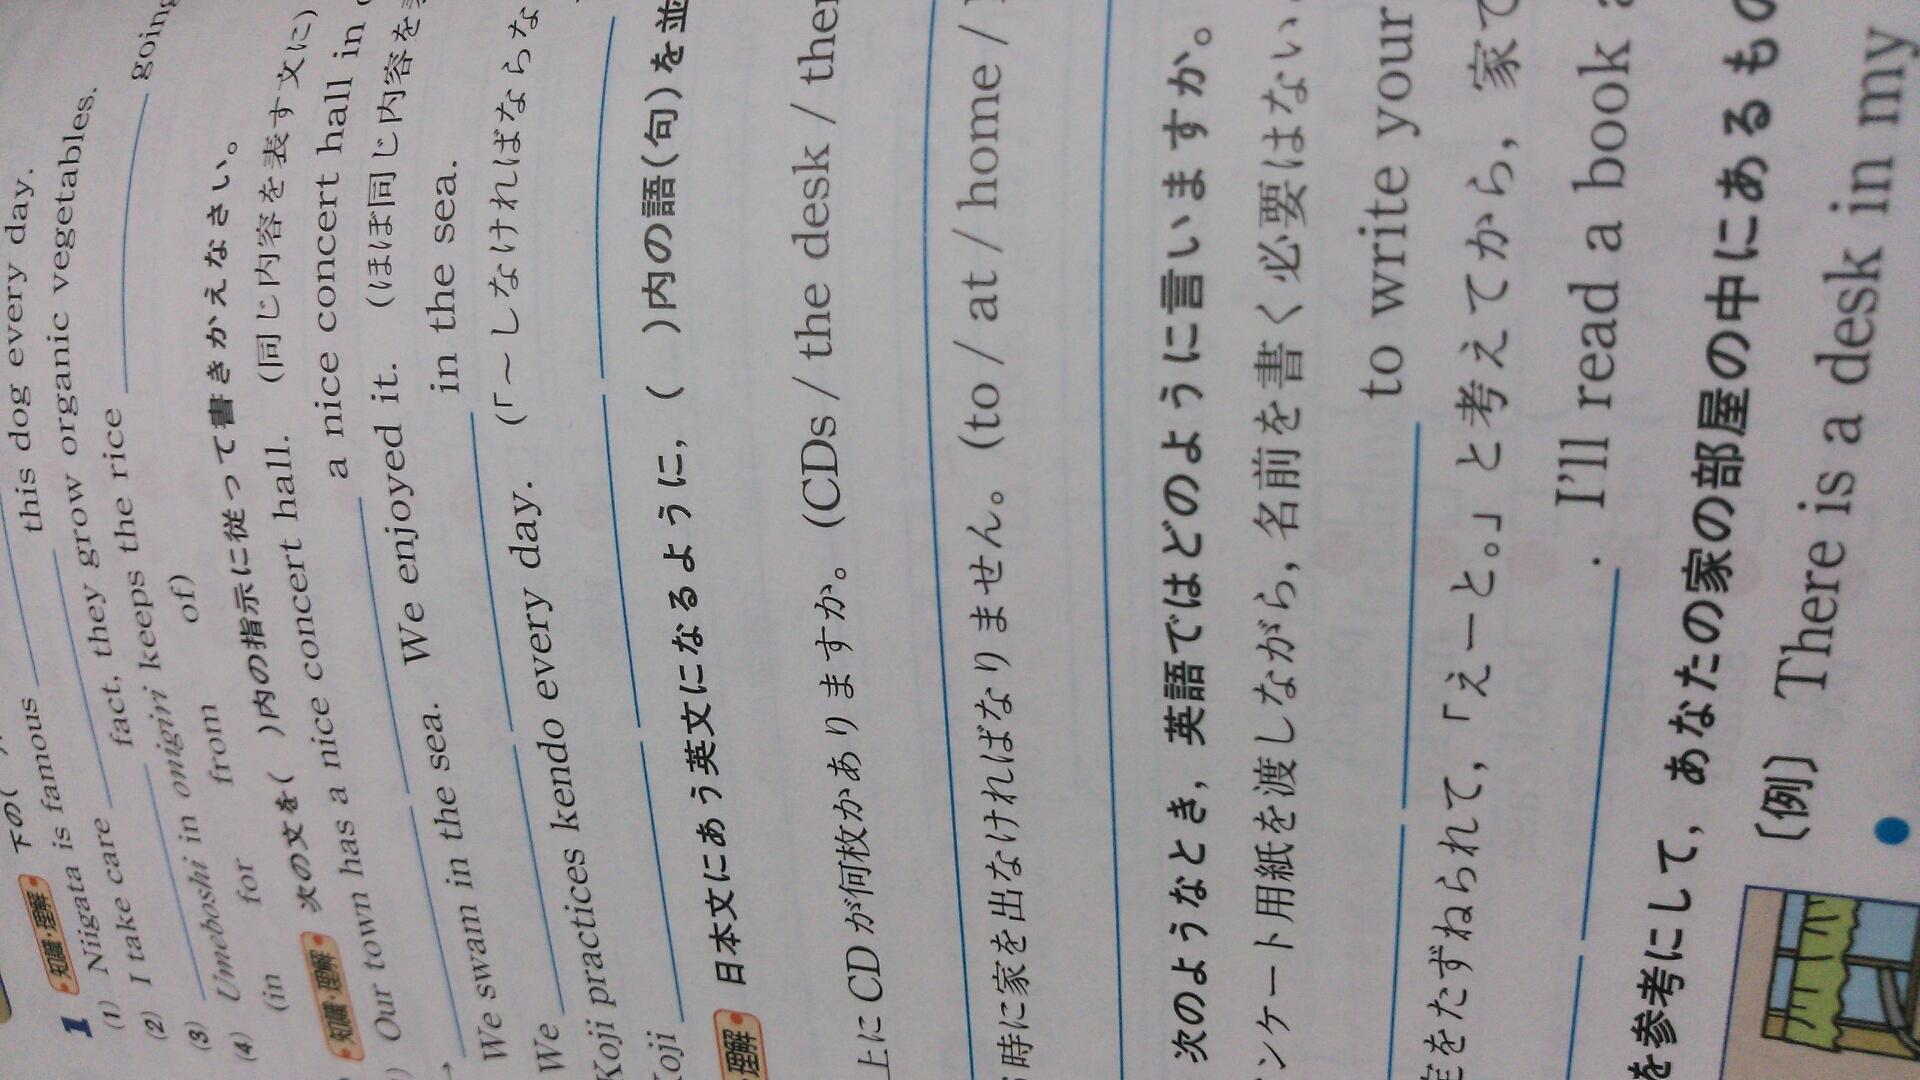 下の(
1 知識・理解
(1) Niigata is famous this dog every day.
(2) I take care fact, they grow organic vegetables.
(3) keeps the rice going
(4) Umeboshi in onigiri
(in for from of)
知識・理解 次の文を( )内の指示に従って書きかえなさい。
Our town has a nice concert hall. (同じ内容を表す文に)
→ a nice concert hall in
We swam in the sea. We enjoyed it. (ほぼ同じ内容を
We in the sea.
Koji practices kendo every day. (「～しなければならな
Koji
理解 日本文にあう英文になるように, ( )内の語(句)を並
上に CD が何枚かありますか。 (CDs / the desk /
時に家を出なければなりません。 (to / at / home /
次のようなとき, 英語ではどのように言いますか。
ンケート用紙を渡しながら, 名前を書く必要はない
to write your
をたずねられて, 「えーと。」と考えてから, 家で
. I'll read a book
を参考にして, あなたの家の部屋の中にあるもの
〔例〕 There is a desk in my